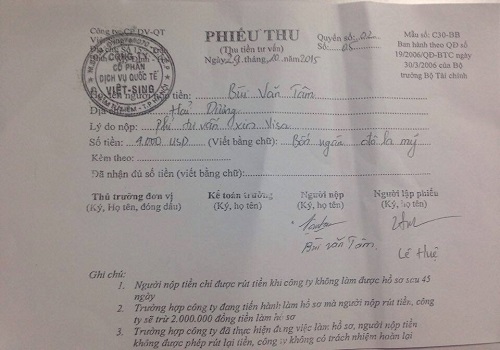 Công ty CP DV-QT
PHIẾU THU
(Thu tiền tư vấn)
Ngày 29 tháng 10 năm 2015
Quyển số: 02
Số: 05
Mẫu số: C30-BB
Ban hành theo QĐ số
19/2006/QĐ-BTC ngày
30/3/2006 của Bộ
trưởng Bộ Tài chính
CÔNG TY
CỔ PHẦN
DỊCH VỤ QUỐC TẾ
VIỆT-SING
Bùi Văn Tâm
Hải Dương
Lý do nộp: Phí tư vấn xin Visa
Số tiền: 4.000 USD (Viết bằng chữ): Bốn ngàn đô la mỹ
Kèm theo:
Đã nhận đủ số tiền (viết bằng chữ):
Thủ trưởng đơn vị Kế toán trưởng Người nộp Người lập phiếu
(Ký, Họ tên, đóng dấu) (Ký, họ tên) (Ký, họ tên) (Ký, họ tên)
Bùi Văn Tâm
Lê Huệ
Ghi chú:
1. Người nộp tiền chỉ được rút tiền khi công ty không làm được hồ sơ sau 45
ngày
2. Trường hợp công ty đang tiến hành làm hồ sơ mà người nộp rút tiền, công
ty sẽ trừ 2.000.000 đồng tiền làm hồ sơ
3. Trường hợp công ty đã thực hiện đúng việc làm hồ sơ, người nộp tiền
không được phép rút lại tiền, công ty không có trách nhiệm hoàn lại